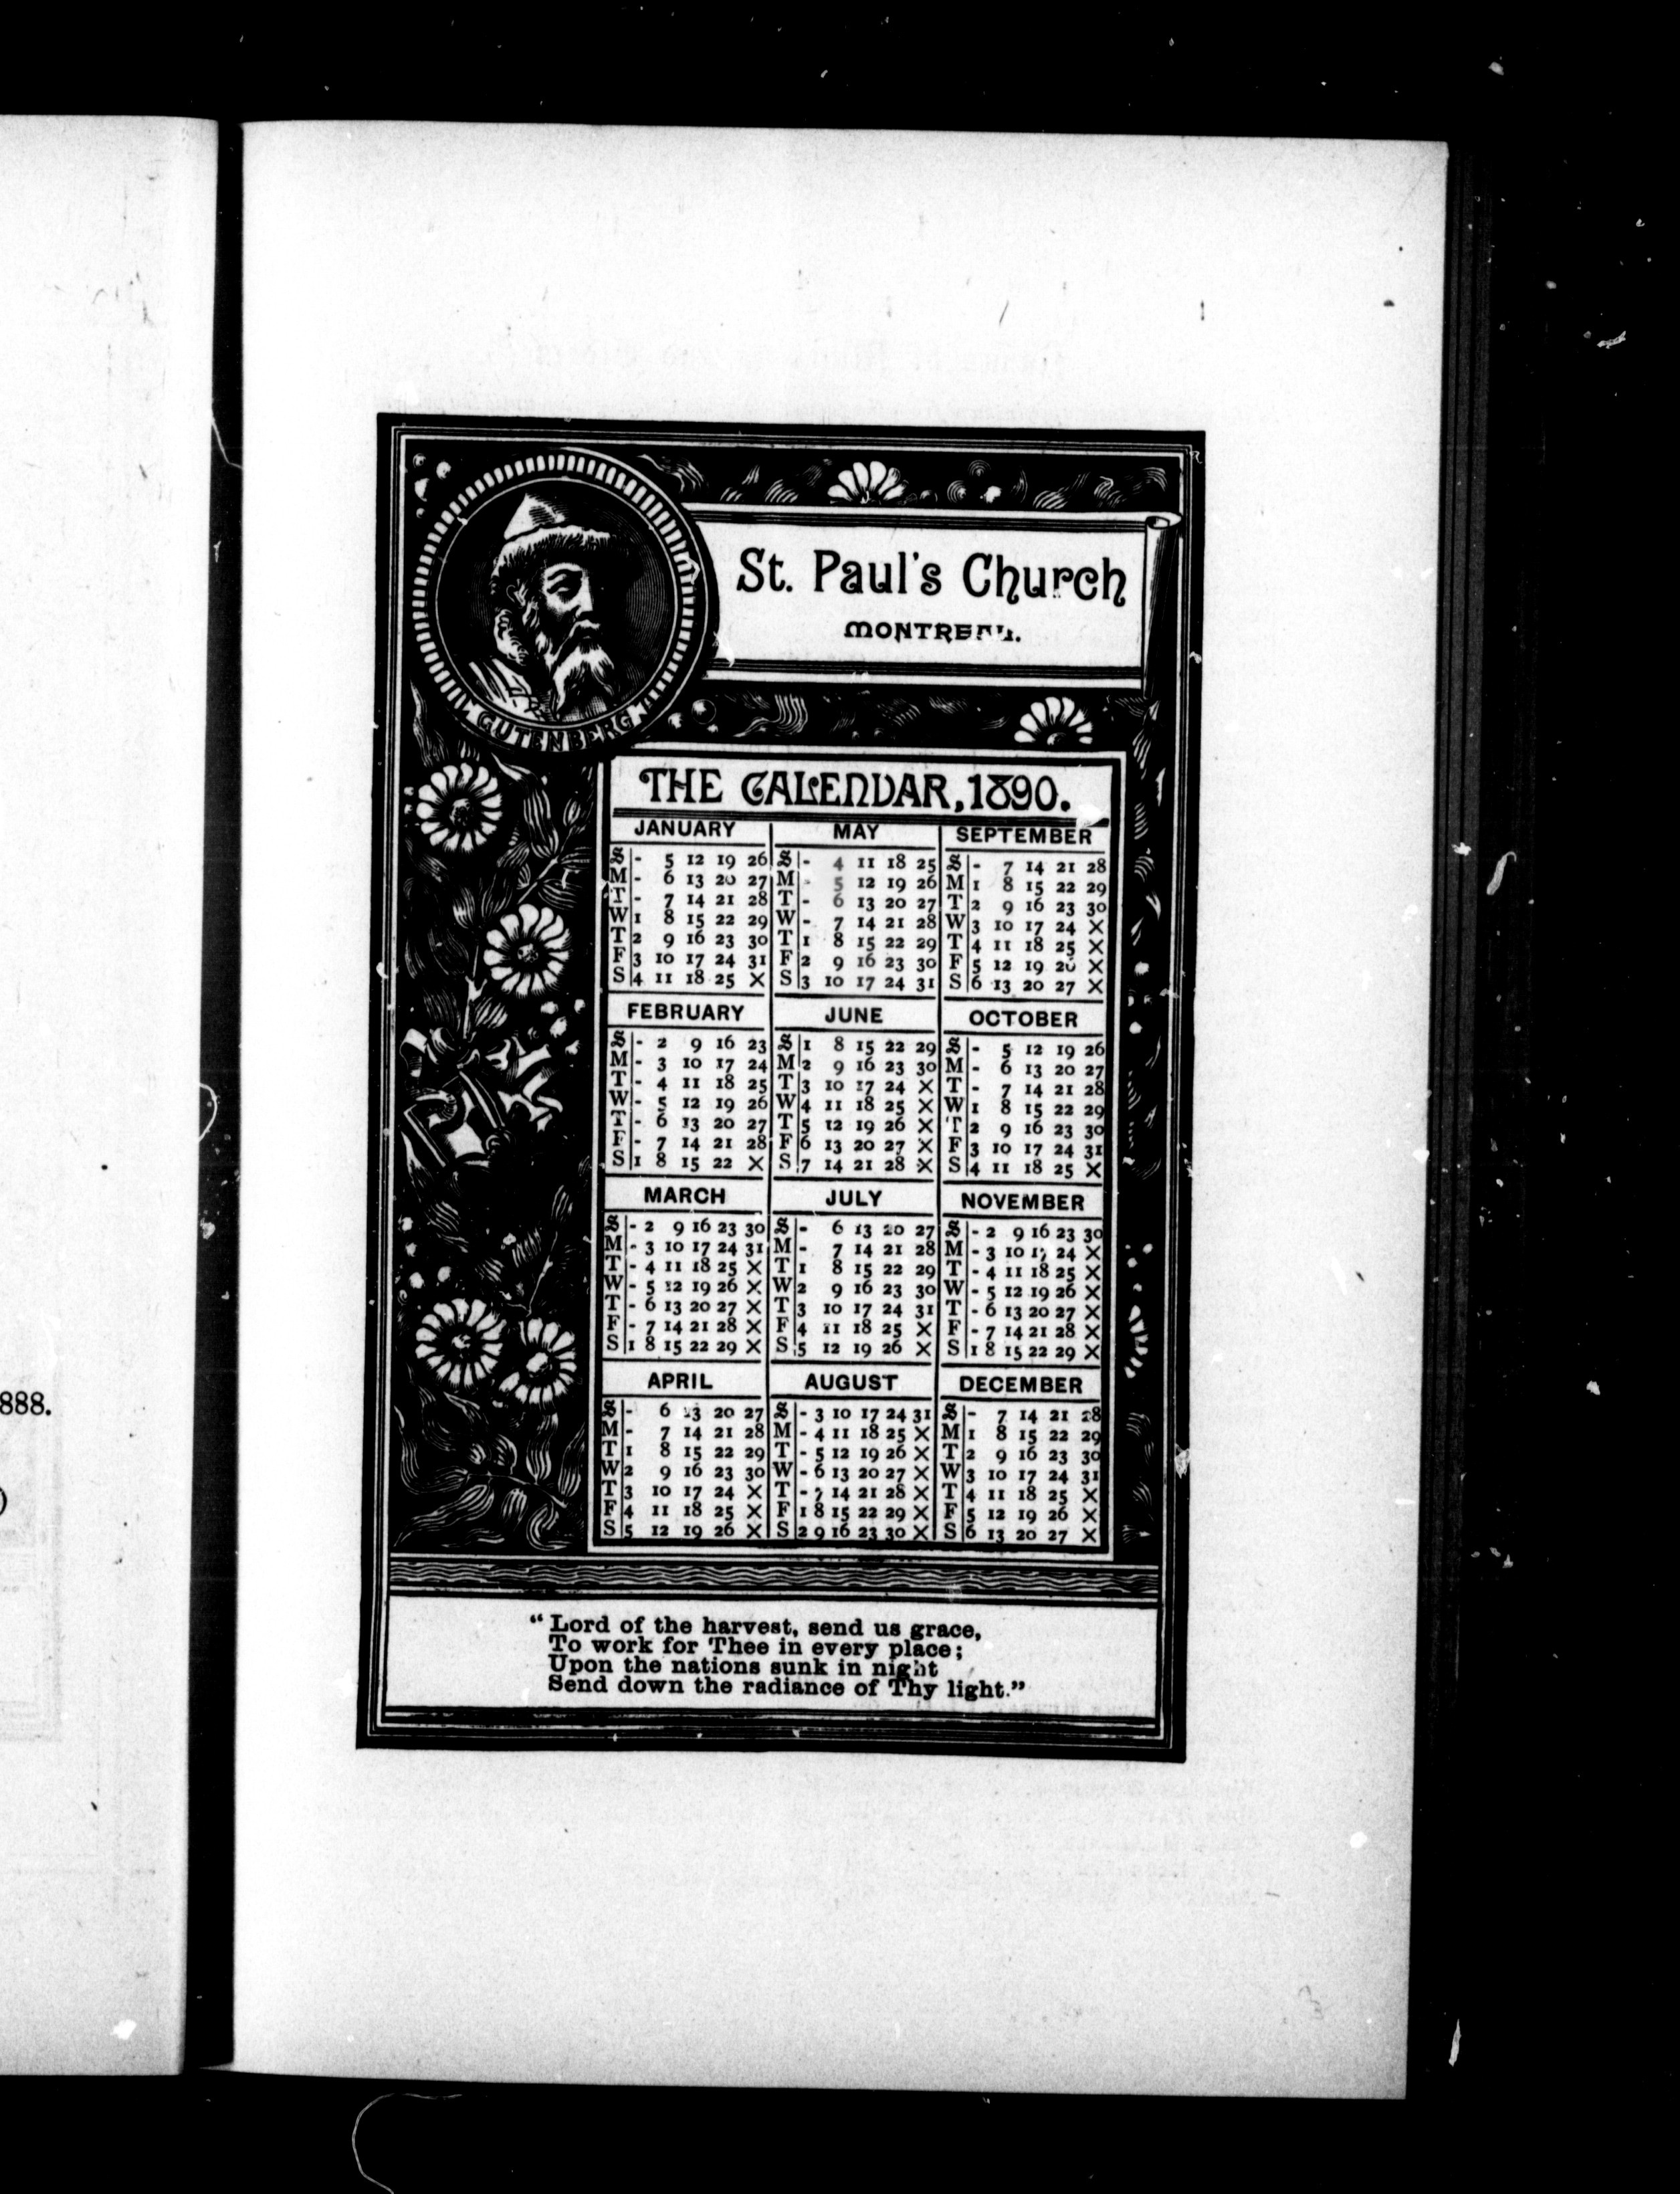 888.
)
GUTENBERG
St. Paul's Church
MONTREAL.
THE CALENDAR, 1890.
JANUARY
S - 5 12 19 26
M - 6 13 20 27
T - 7 14 21 28
W 1 8 15 22 29
T 2 9 16 23 30
F 3 10 17 24 31
S 4 11 18 25 X
FEBRUARY
S - 2 9 16 23
M - 3 10 17 24
T - 4 11 18 25
W - 5 12 19 26
T - 6 13 20 27
F - 7 14 21 28
S 1 8 15 22 X
MARCH
S - 2 9 16 23 30
M - 3 10 17 24 31
T - 4 11 18 25 X
W - 5 12 19 26 X
T - 6 13 20 27 X
F - 7 14 21 28 X
S 1 8 15 22 29 X
APRIL
S - 6 13 20 27
M - 7 14 21 28
T 1 8 15 22 29
W 2 9 16 23 30
T 3 10 17 24 X
F 4 11 18 25 X
S 5 12 19 26 X
MAY
S - 4 11 18 25
M - 5 12 19 26
T - 6 13 20 27
W - 7 14 21 28
T 1 8 15 22 29
F 2 9 16 23 30
S 3 10 17 24 31
JUNE
S 1 8 15 22 29
M 2 9 16 23 30
T 3 10 17 24 X
W 4 11 18 25 X
T 5 12 19 26 X
F 6 13 20 27 X
S 7 14 21 28 X
JULY
S - 6 13 20 27
M - 7 14 21 28
T 1 8 15 22 29
W 2 9 16 23 30
T 3 10 17 24 31
F 4 11 18 25 X
S 5 12 19 26 X
AUGUST
S - 3 10 17 24 31
M - 4 11 18 25 X
T - 5 12 19 26 X
W - 6 13 20 27 X
T - 7 14 21 28 X
F 1 8 15 22 29 X
S 2 9 16 23 30 X
SEPTEMBER
S - 7 14 21 28
M 1 8 15 22 29
T 2 9 16 23 30
W 3 10 17 24 X
T 4 11 18 25 X
F 5 12 19 26 X
S 6 13 20 27 X
OCTOBER
S - 5 12 19 26
M - 6 13 20 27
T - 7 14 21 28
W 1 8 15 22 29
T 2 9 16 23 30
F 3 10 17 24 31
S 4 11 18 25 X
NOVEMBER
S - 2 9 16 23 30
M - 3 10 17 24 X
T - 4 11 18 25 X
W - 5 12 19 26 X
T - 6 13 20 27 X
F - 7 14 21 28 X
S 1 8 15 22 29 X
DECEMBER
S - 7 14 21 28
M 1 8 15 22 29
T 2 9 16 23 30
W 3 10 17 24 31
T 4 11 18 25 X
F 5 12 19 26 X
S 6 13 20 27 X
“Lord of the harvest, send us grace,
To work for Thee in every place;
Upon the nations sunk in night
Send down the radiance of Thy light.”